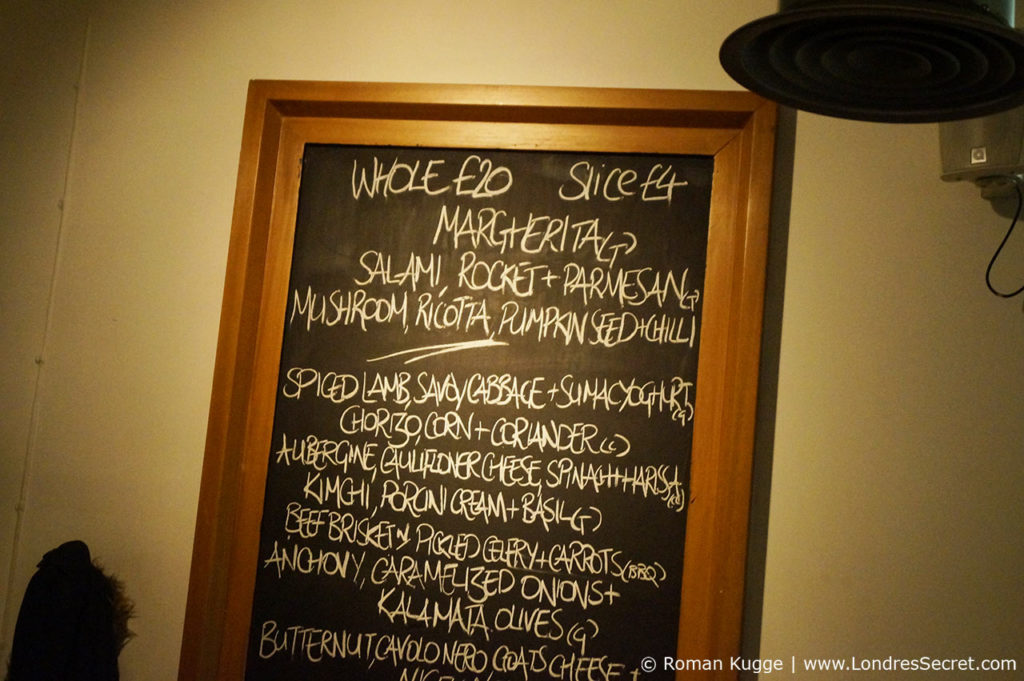 WHOLE £20 Slice £4
MARGHERITA (T)
SALAMI, ROCKET + PARMESAN (T)
MUSHROOM, RICOTTA, PUMPKIN SEED + CHILLI
SPICED LAMB, SAVOY CABBAGE + SUMAC YOGHURT
(G)
CHORIZO, CORN + CORIANDER
AUBERGINE, CAULIFLOWER CHEESE, SPINACH + HARISSA
KIMCHI, PORCINI CREAM + BASIL (T)
BEEF BRISKET PICKLED CELERY + CARROTS (BBQ)
ANCHOVY, CARAMELIZED ONIONS +
KALAMATA OLIVES (G)
BUTTERNUT, CAVOLO NERO GOATS CHEESE +
© Roman Kugge | www.LondresSecret.com